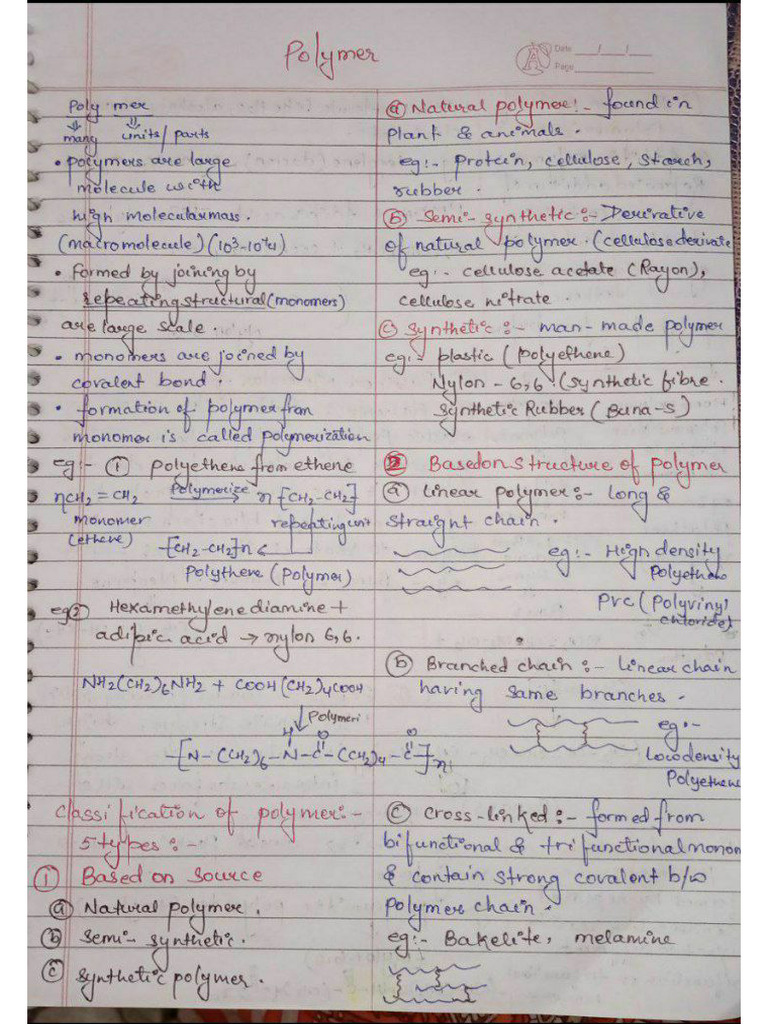 Polymer
Date ___/___/___
Page
Poly mer
many units/parts
• polymers are large
molecule with
high molecularmass.
(macromolecule) (10³-10⁷u)
• formed by joining by
repeating structural (monomers)
are large scale.
• monomers are joined by
covalent bond.
• formation of polymer from
monomer is called polymerization
eg:- ① polyethene from ethene
nCH2 = CH2 Polymerize n [CH2-CH2]
monomer repeating unit
(ethene) -[CH2-CH2]n
Polythene (Polymer)
eg② Hexamethylene diamine +
adipic acid → nylon 6,6.
NH2(CH2)6NH2 + COOH(CH2)4COOH
↓ Polymeri
H O O
-[N-(CH2)6-N-C-(CH2)4-C-]n
Classification of polymer:-
5 types:-
① Based on source
ⓐ Natural polymer.
ⓑ Semi-synthetic.
ⓒ synthetic polymer.
ⓐ Natural polymer:- found in
plant & animals.
eg:- protein, cellulose, starch,
rubber.
ⓑ Semi-synthetic:- Derivative
of natural polymer. (cellulose derivate
eg:- cellulose acetate (Rayon),
cellulose nitrate.
ⓒ Synthetic:- man-made polymer
eg:- plastic (Polyethene)
Nylon-6,6 (synthetic fibre.
synthetic Rubber (Buna-S)
② Based on structure of polymer
ⓐ linear polymer:- long &
straight chain.
eg:- High density
Polyethene
PVC (Polyvinyl
chloride)
ⓑ Branched chain:- linear chain
having same branches.
eg:-
Low density
Polyethene
ⓒ Cross-linked:- formed from
bifunctional & trifunctional monom
& contain strong covalent b/w
polymer chain.
eg:- Bakelite, melamine